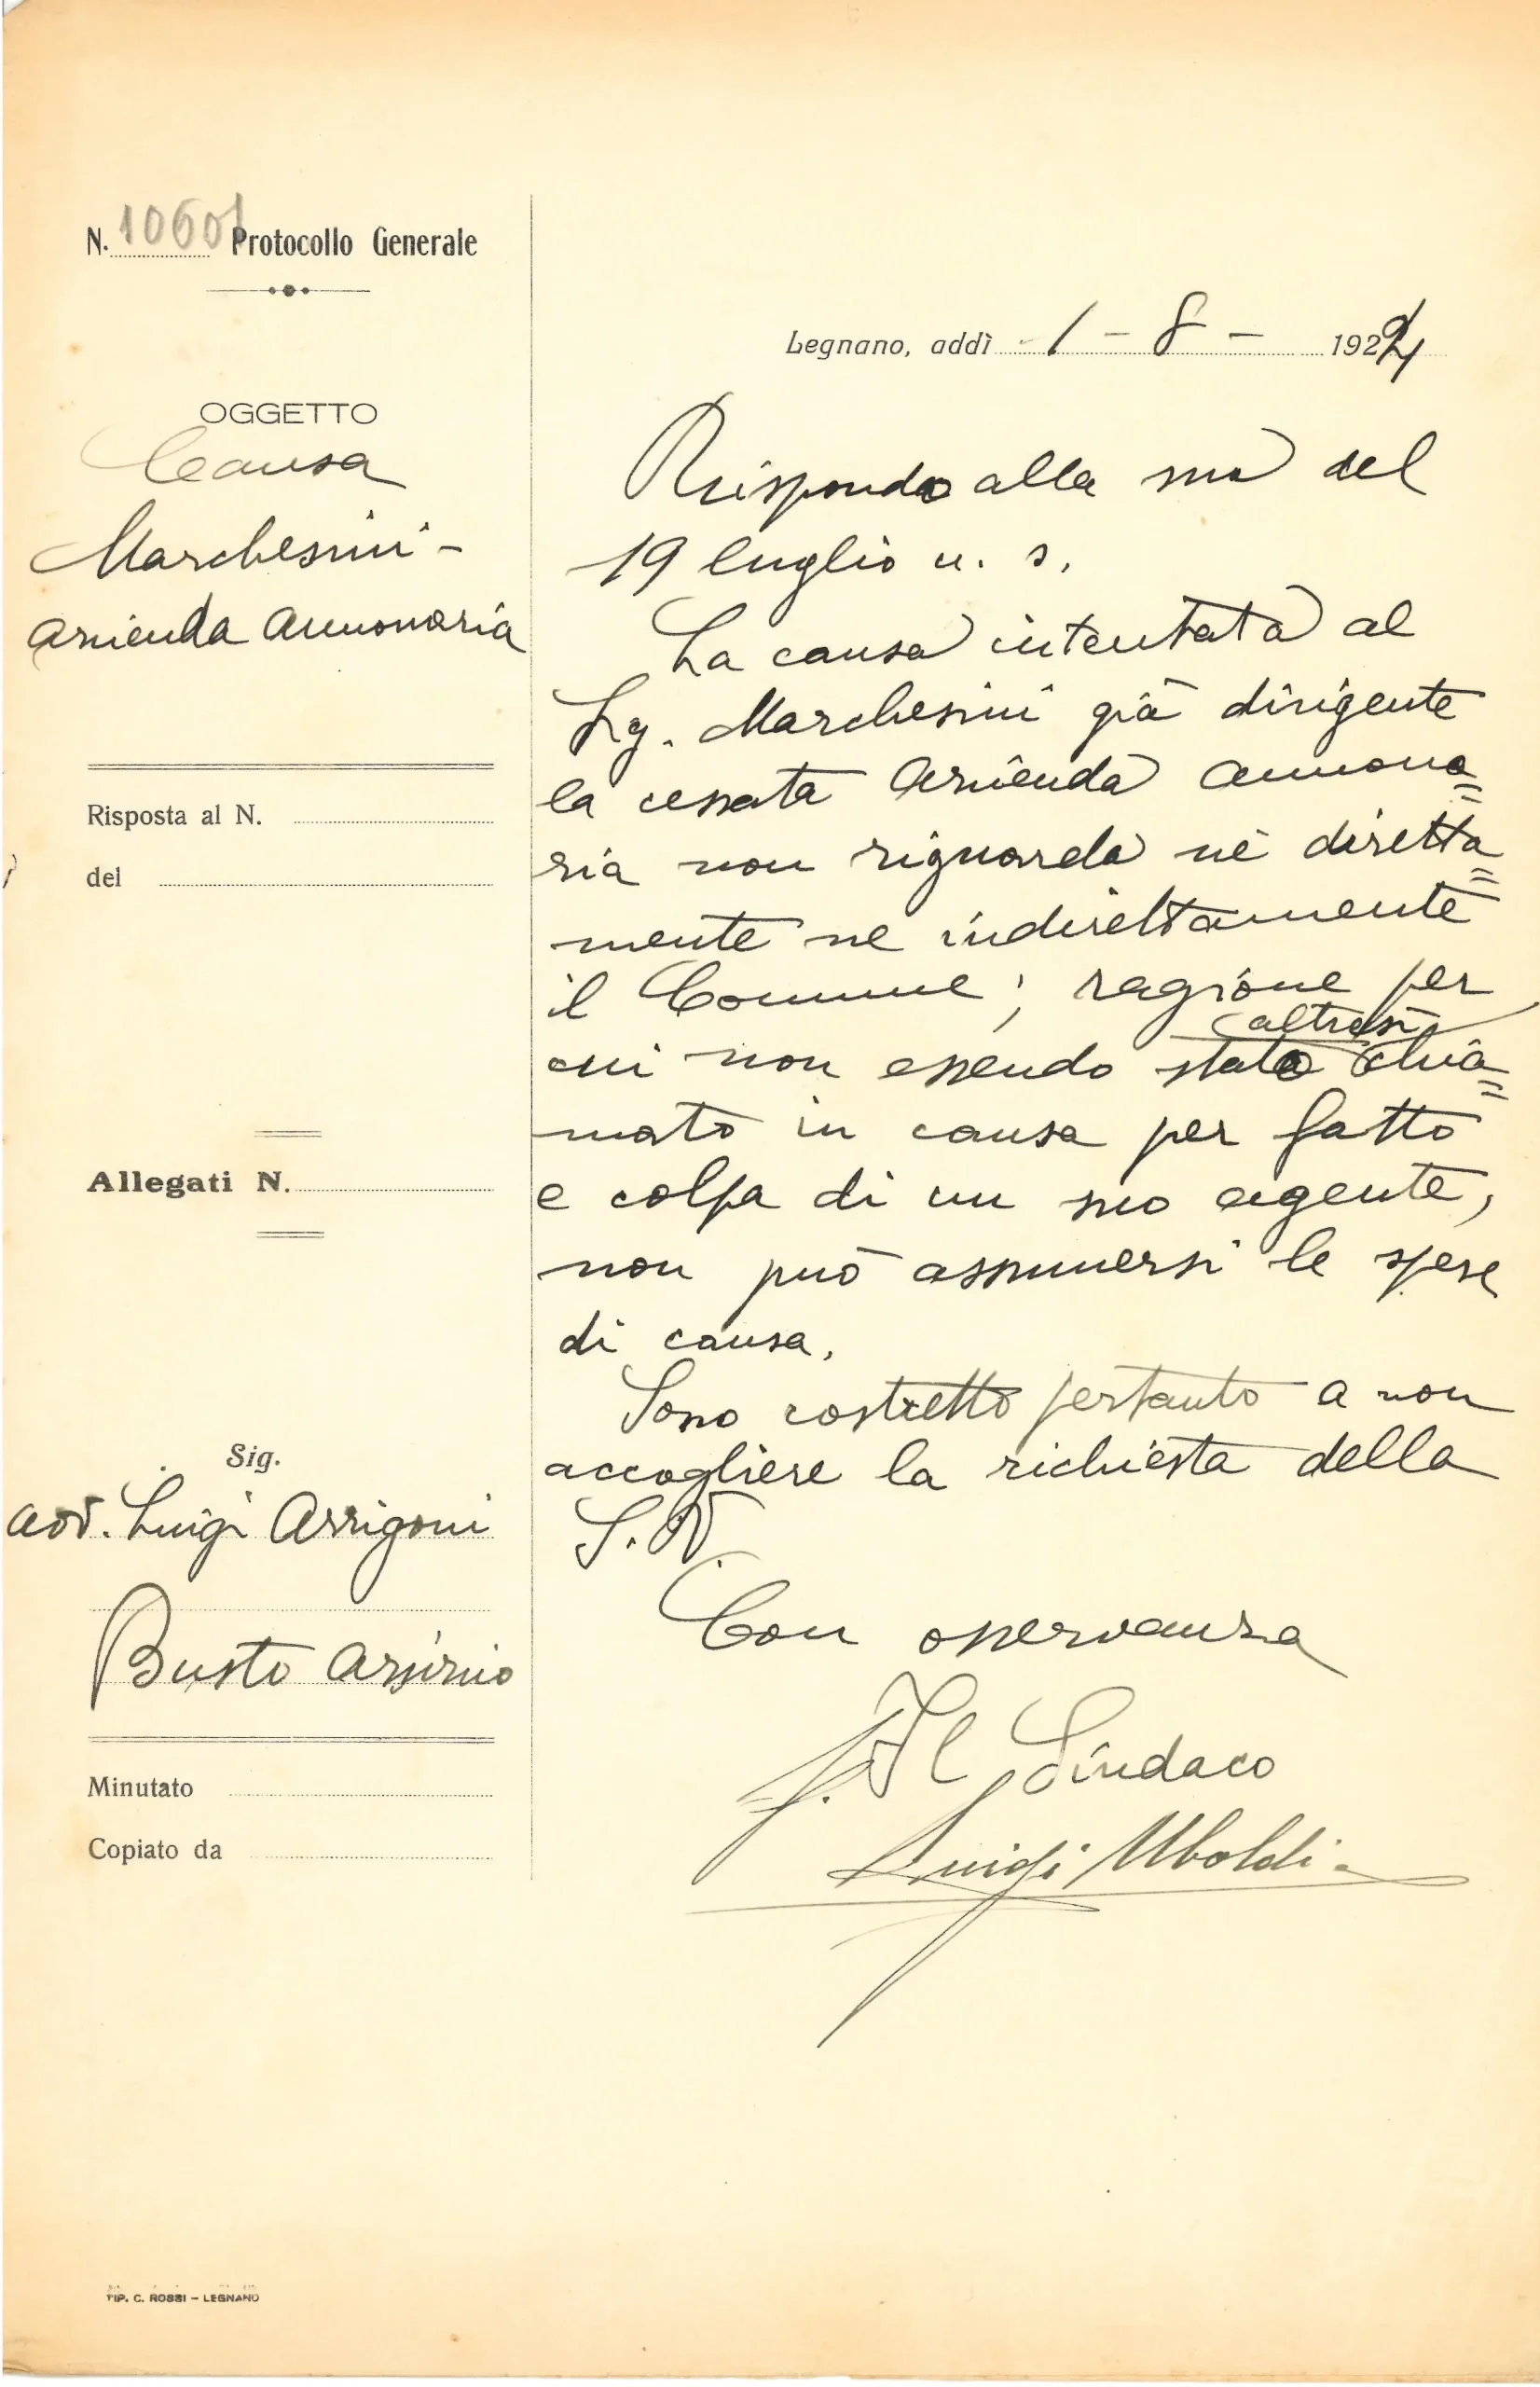 N. 10601 Protocollo Generale
OGGETTO
Causa
Marchesini -
Azienda Annonaria
Risposta al N.
del
Allegati N.
Sig.
avv. Luigi Arrigoni
Busto Arsizio
Minutato
Copiato da
TIP. C. ROSSI - LEGNANO
Legnano, addì 1 - 8 - 1924
Rispondo alla sua del
19 luglio u. s.
La causa intentata al
Sg. Marchesini già dirigente
la cessata Azienda annona=
ria non riguarda nè diretta=
mente ne indirettamente
il Comune; ragione per
altresì
cui non essendo stato chia=
mato in causa per fatto
e colpa di un suo agente,
non può assumersi le spese
di causa.
Sono costretto pertanto a non
accogliere la richiesta della
S. V.
Con osservanza
f. Il Sindaco
Luigi Uboldi